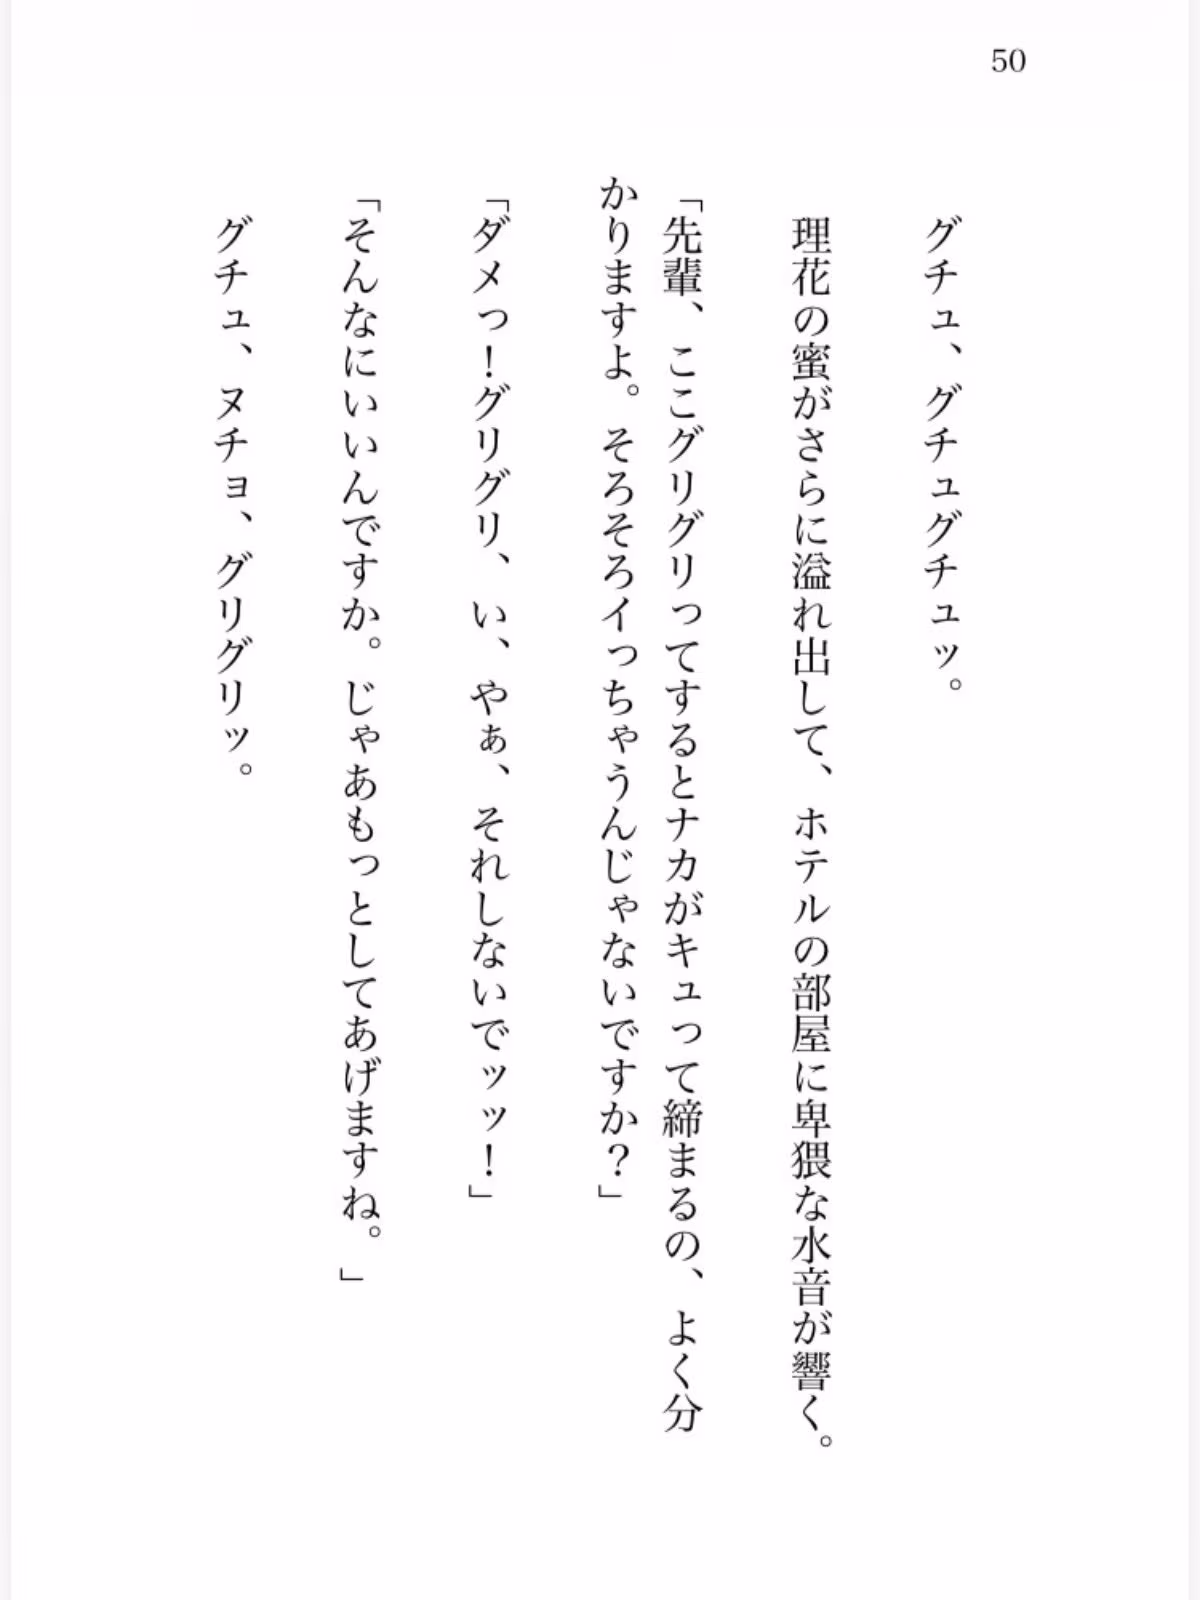 50
グチュ、グチュグチュッ。
理花の蜜がさらに溢れ出して、ホテルの部屋に卑猥な水音が響く。
「先輩、ここグリグリってするとナカがキュって締まるの、よく分
かりますよ。そろそろイっちゃうんじゃないですか？」
「ダメっ！グリグリ、い、やぁ、それしないでッッ！」
「そんなにいいんですか。じゃあもっとしてあげますね。」
グチュ、ヌチョ、グリグリッ。